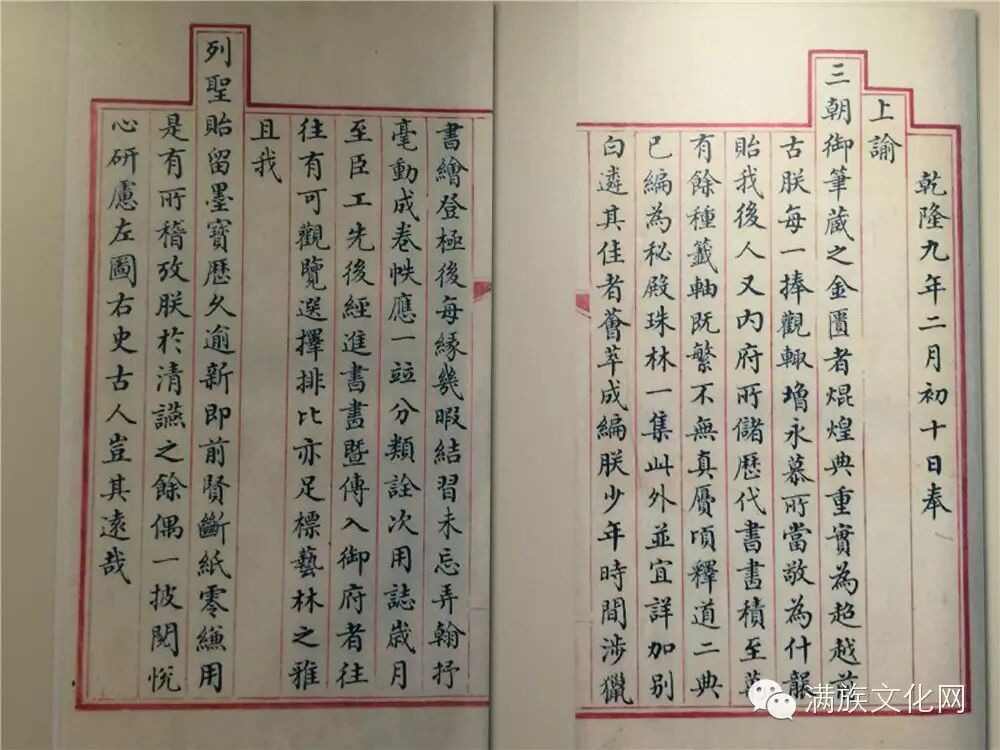 乾隆九年二月初十日奉
上諭
三朝御筆藏之金匱者焜煌典重實為超越前
古朕每一捧觀輙增永慕所當敬為什襲
貽我後人又內府所儲歷代書畫積至萬
有餘種籤軸既繁不無真贋頃釋道二典
已編為秘殿珠林一集此外並宜詳加別
白遴其佳者薈萃成編朕少年時間涉獵
書繪登極後每緣幾暇結習未忘弄翰抒
毫動成卷帙應一竝分類詮次用誌嵗月
至臣工先後經進書畫暨傳入御府者往
往有可觀覽選擇排比亦足標藝林之雅
且我
列聖貽留墨寶歷久逾新即前賢斷紙零縑用
是有所稽攷朕於清讌之餘偶一披閱悅
心研慮左圖右史古人豈其遠哉
满族文化网